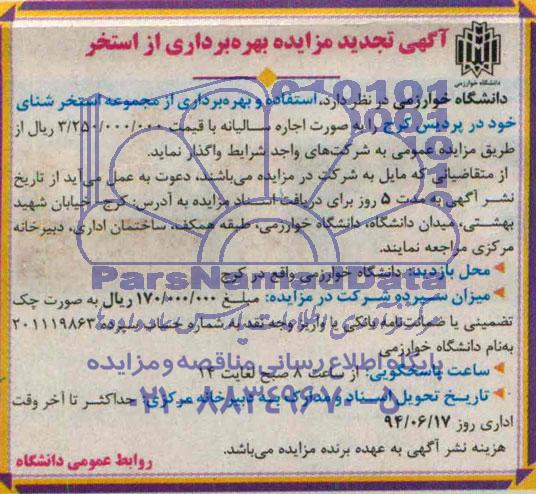 آگهی تجدید مزایده بهره‌برداری از استخر
دانشگاه خوارزمی
دانشگاه خوارزمی در نظر دارد، استفاده و بهره‌برداری از مجموعه استخر شنای
خود در پردیس کرج را به صورت اجاره سالیانه با قیمت ۳/۲۵۰/۰۰۰/۰۰۰ ریال از
طریق مزایده عمومی به شرکت‌های واجد شرایط واگذار نماید.
از متقاضیانی که مایل به شرکت در مزایده می‌باشند، دعوت به عمل می‌آید از تاریخ
نشر آگهی به مدت ۵ روز برای دریافت اسناد مزایده به آدرس: کرج- خیابان شهید
بهشتی، میدان دانشگاه، دانشگاه خوارزمی، طبقه همکف، ساختمان اداری، دبیرخانه
مرکزی مراجعه نمایند.
محل بازدید: دانشگاه خوارزمی واقع در کرج
میزان سپرده شرکت در مزایده: مبلغ ۱۷۰/۰۰۰/۰۰۰ ریال به صورت چک
تضمینی یا ضمانت‌نامه بانکی یا واریز وجه نقد به شماره حساب سپرده ۲۰۱۱۱۹۸۶۳
به‌نام دانشگاه خوارزمی
ساعت پاسخگویی: از ساعت ۸ صبح لغایت ۱۴
تاریخ تحویل اسناد و مدارک به دبیرخانه مرکزی: حداکثر تا آخر وقت
اداری روز ۹۴/۰۶/۱۷
هزینه نشر آگهی به عهده برنده مزایده می‌باشد.
روابط عمومی دانشگاه
ParsNamadData
پایگاه اطلاع رسانی مناقصه و مزایده
۰۲۱-۸۸۳۴۹۶۷۰-۵